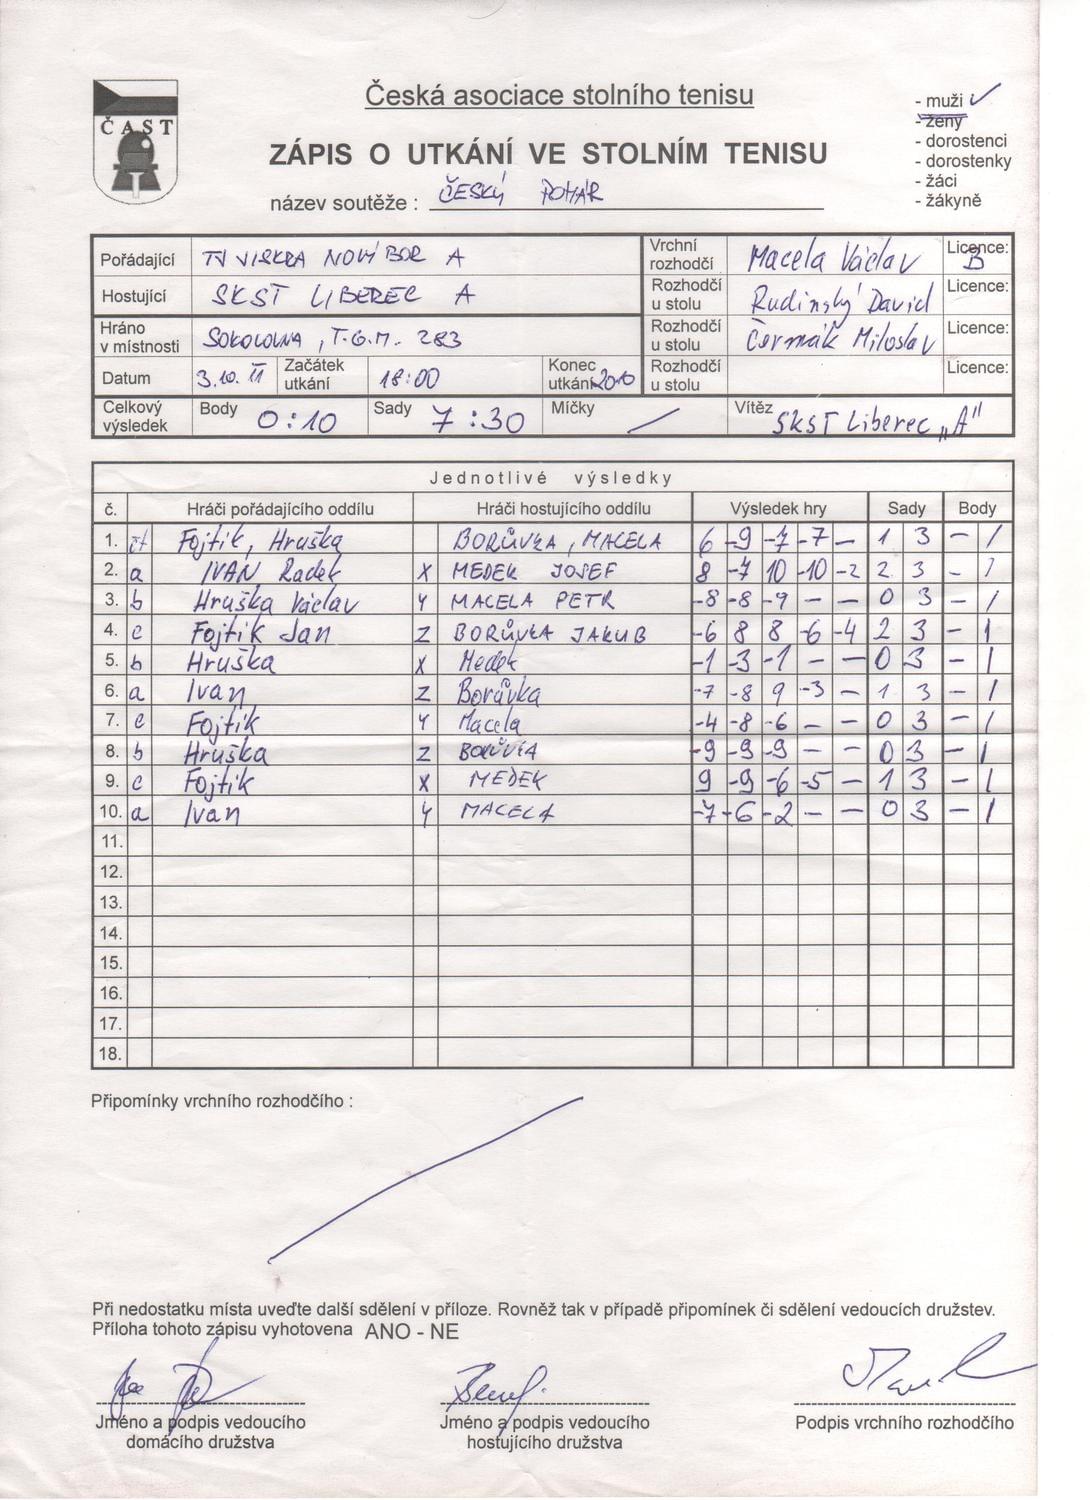 Česká asociace stolního tenisu
ČAST
ZÁPIS O UTKÁNÍ VE STOLNÍM TENISU
název soutěže : ČESKÝ POHÁR
- muži ✓
- ženy
- dorostenci
- dorostenky
- žáci
- žákyně
Pořádající TJ VISKRA NOVÝ BOR A Vrchní rozhodčí Macela Václav Licence: B
Hostující SKST LIBEREC A Rozhodčí u stolu Rudinský David Licence:
Hráno v místnosti SOKOLOVNA, T.G.M. 283 Rozhodčí u stolu Čermák Miloslav Licence:
Datum 3.10. 11 Začátek utkání 18:00 Konec utkání 2010 Rozhodčí u stolu Licence:
Celkový výsledek Body 0:10 Sady 7:30 Míčky / Vítěz SKST Liberec „A"
Jednotlivé výsledky
č. Hráči pořádajícího oddílu Hráči hostujícího oddílu Výsledek hry Sady Body
1. čt Fojtík, Hruška BORŮVKA, MACELA 6 -9 -7 -7 – 1 3 – 1
2. a IVAN Radek X MEDEK JOSEF 8 -7 10 -10 -2 2 3 – 1
3. b Hruška Václav Y MACELA PETR -8 -8 -9 – – 0 3 – 1
4. c Fojtík Jan Z BORŮVKA JAKUB -6 8 8 -6 -4 2 3 – 1
5. b Hruška X Medek -1 -3 -1 – – 0 3 – 1
6. a Ivan Z Borůvka -7 -8 9 -3 – 1 3 – 1
7. c Fojtík Y Macela -4 -8 -6 – – 0 3 – 1
8. b Hruška Z BORŮVKA -9 -9 -9 – – 0 3 – 1
9. c Fojtík X MEDEK 9 -9 -6 -5 – 1 3 – 1
10. a Ivan Y MACELA -7 -6 -2 – – 0 3 – 1
11.
12.
13.
14.
15.
16.
17.
18.
Připomínky vrchního rozhodčího :
Při nedostatku místa uveďte další sdělení v příloze. Rovněž tak v případě připomínek či sdělení vedoucích družstev.
Příloha tohoto zápisu vyhotovena ANO - NE
Jméno a podpis vedoucího domácího družstva
Jméno a podpis vedoucího hostujícího družstva
Podpis vrchního rozhodčího